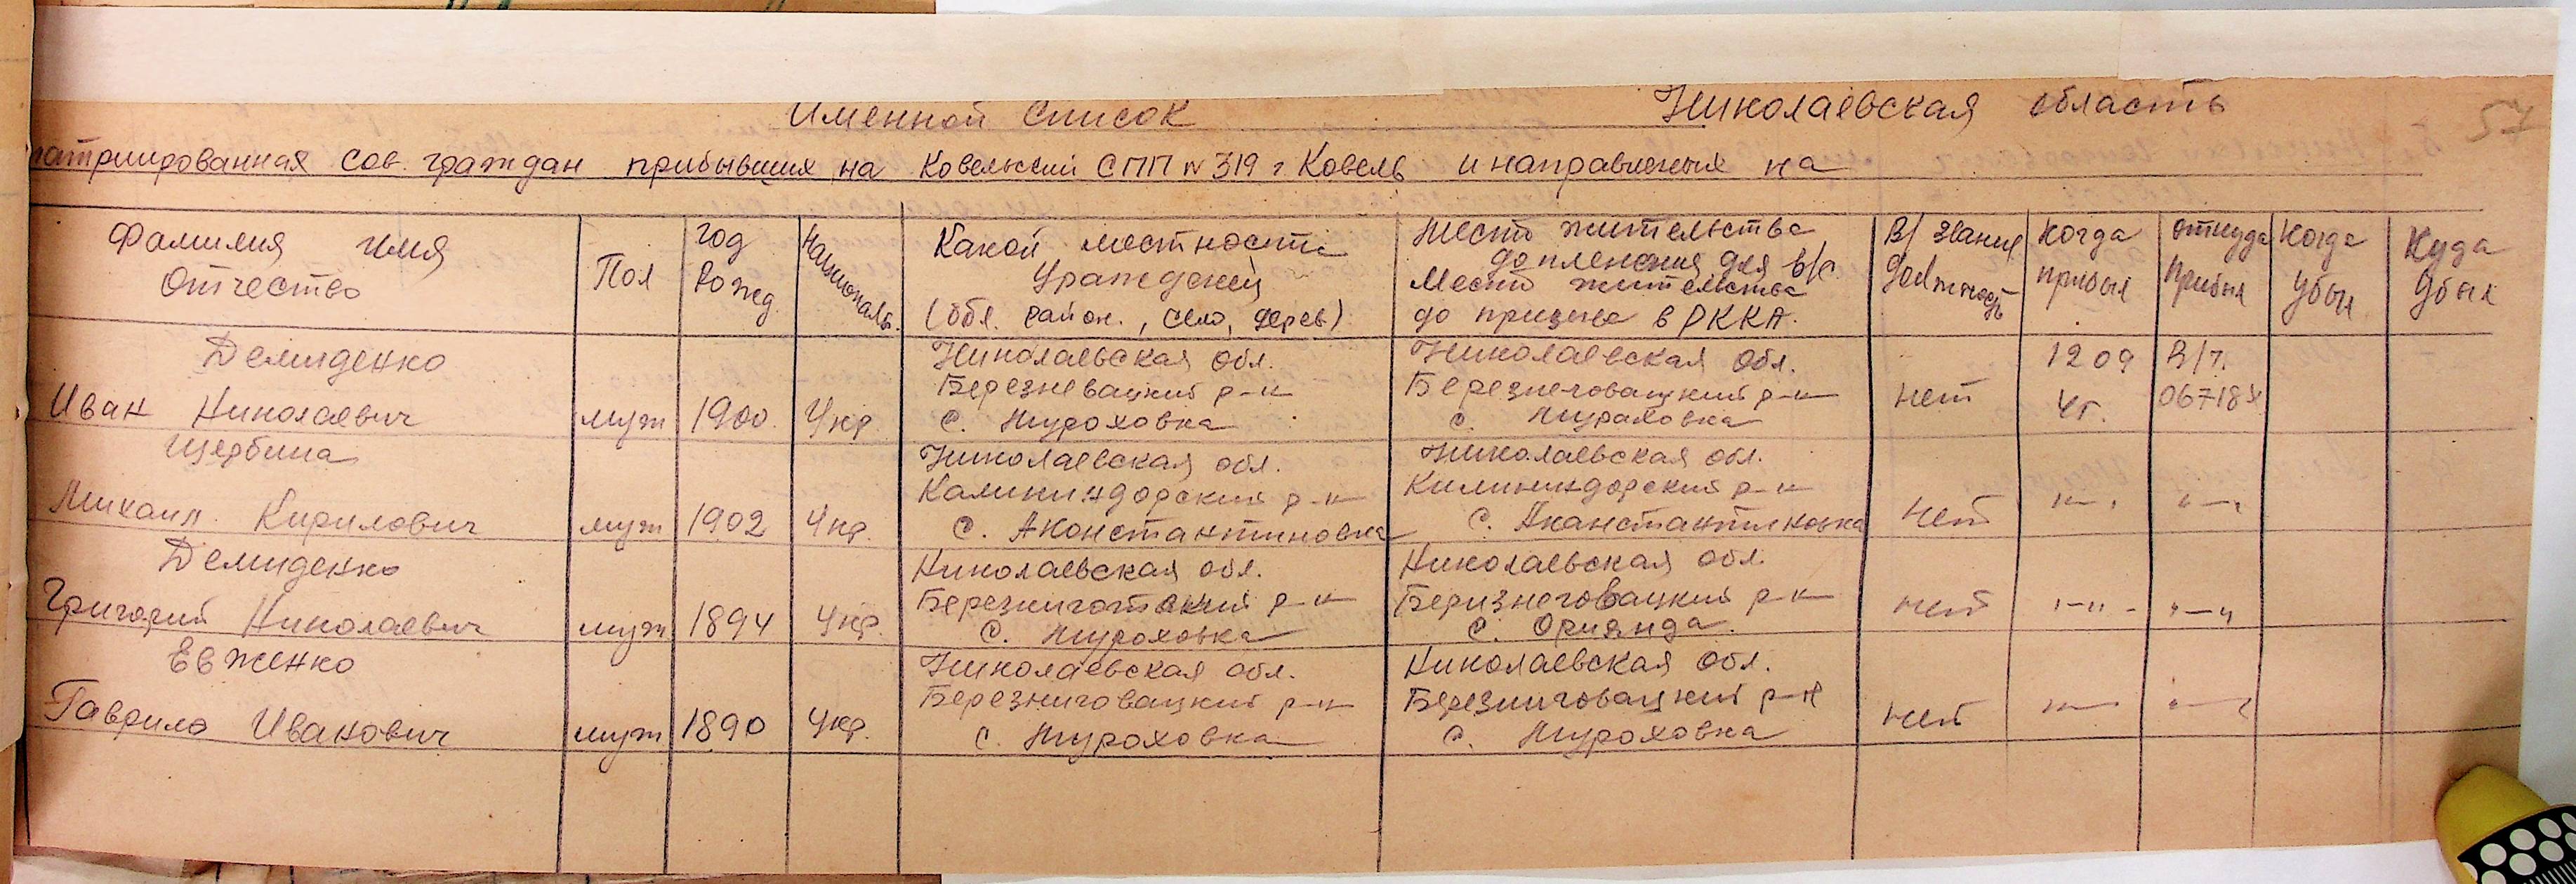 Именной список Николаевская область 57
патриированная сов. граждан прибывших на Ковельский СПП N 319 г. Ковель и направленых на
Фамилия имя
Отчество
Пол
год
Рожд.
Националь.
Какой местности
Уражденец
(обл. район., село, дерев)
Место жительства
до пленения для в/с.
Место жительства
до призыва в РККА.
В/звание
должность
Когда
прибыл
откуда
прибыл
Когда
убыл
Куда
убыл
Демиденко
Иван Николаевич
муж
1900.
Укр.
Николаевская обл.
Березневацкий р-н
с. Муроховка
Николаевская обл.
Березнеговацкий р-н
с. Мураховка
нет
12 09
4г.
В/ч.
06718
Щербина
Михаил. Кирилович
муж
1902
Укр.
Николаевская обл.
Калининдорский р-н
с. Аконстантиновка
Николаевская обл.
Килининдорский р-н
с. Аканстантиновка
нет
"—"
"—"
Демиденко
Григорий Николаевич
муж
1894
Укр.
Николаевская обл.
р-н
с. Муроховка
Николаевская обл.
Беризнеговацкий р-н
с. Ориянда.
нет
"—"
"—"
Евженко
Гаврило Иванович
муж
1890
Укр.
Николаевская обл.
Березниговацкий р-н
с. Муроховка
Николаевская обл.
Березниговацкий р-н
с. Муроховка
нет
"—"
"—"